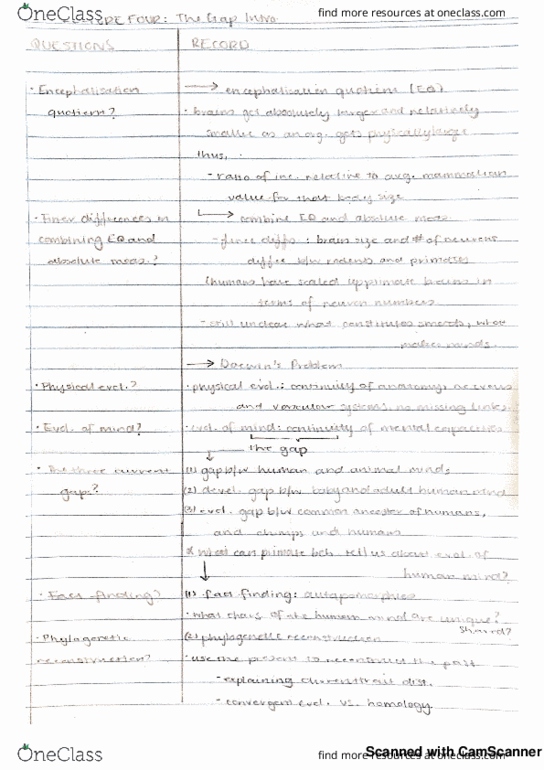 OneClass
find more resources at oneclass.com
LECTURE FOUR: The Gap Intro
QUESTIONS
RECORD
· Encephalisation
quotient?
→ encephalisation quotient (EQ)
· brains get absolutely larger and relatively
smaller as an org. gets physically larger
thus,
- ratio of inc. relative to avg. mammalian
value for that body size
· Finer differences in
combining EQ and
absolute meas.?
→ combine EQ and absolute meas.
- finer diffs: brain size and # of neurons
differ b/w rodents and primates
(humans have scaled up primate brains in
terms of neuron numbers
- still unclear what constitutes smarts, what
makes minds.
→ Darwin's Problem
· Physical evol.?
· physical evol.: continuity of anatomy, nervous
and vascular systems, no missing links.
· Evol. of mind?
· evol. of mind: continuity of mental capacities
the gap
· The three current
gaps?
(1) gap b/w human and animal minds
(2) devel. gap b/w baby and adult human mind
(3) evol. gap b/w common ancestor of humans,
and chimps and humans
* what can primate beh. tell us about evol. of
human mind?
· Fact finding?
(1) fact finding: autapomorphies
· what chars of the human mind are unique?
Shared?
· Phylogenetic
reconstruction?
(2) phylogenetic reconstruction
· use the present to reconstruct the past
- explaining current trait dist.
- convergent evol. vs. homology
OneClass
find more resources at oneclass.com
Scanned with CamScanner